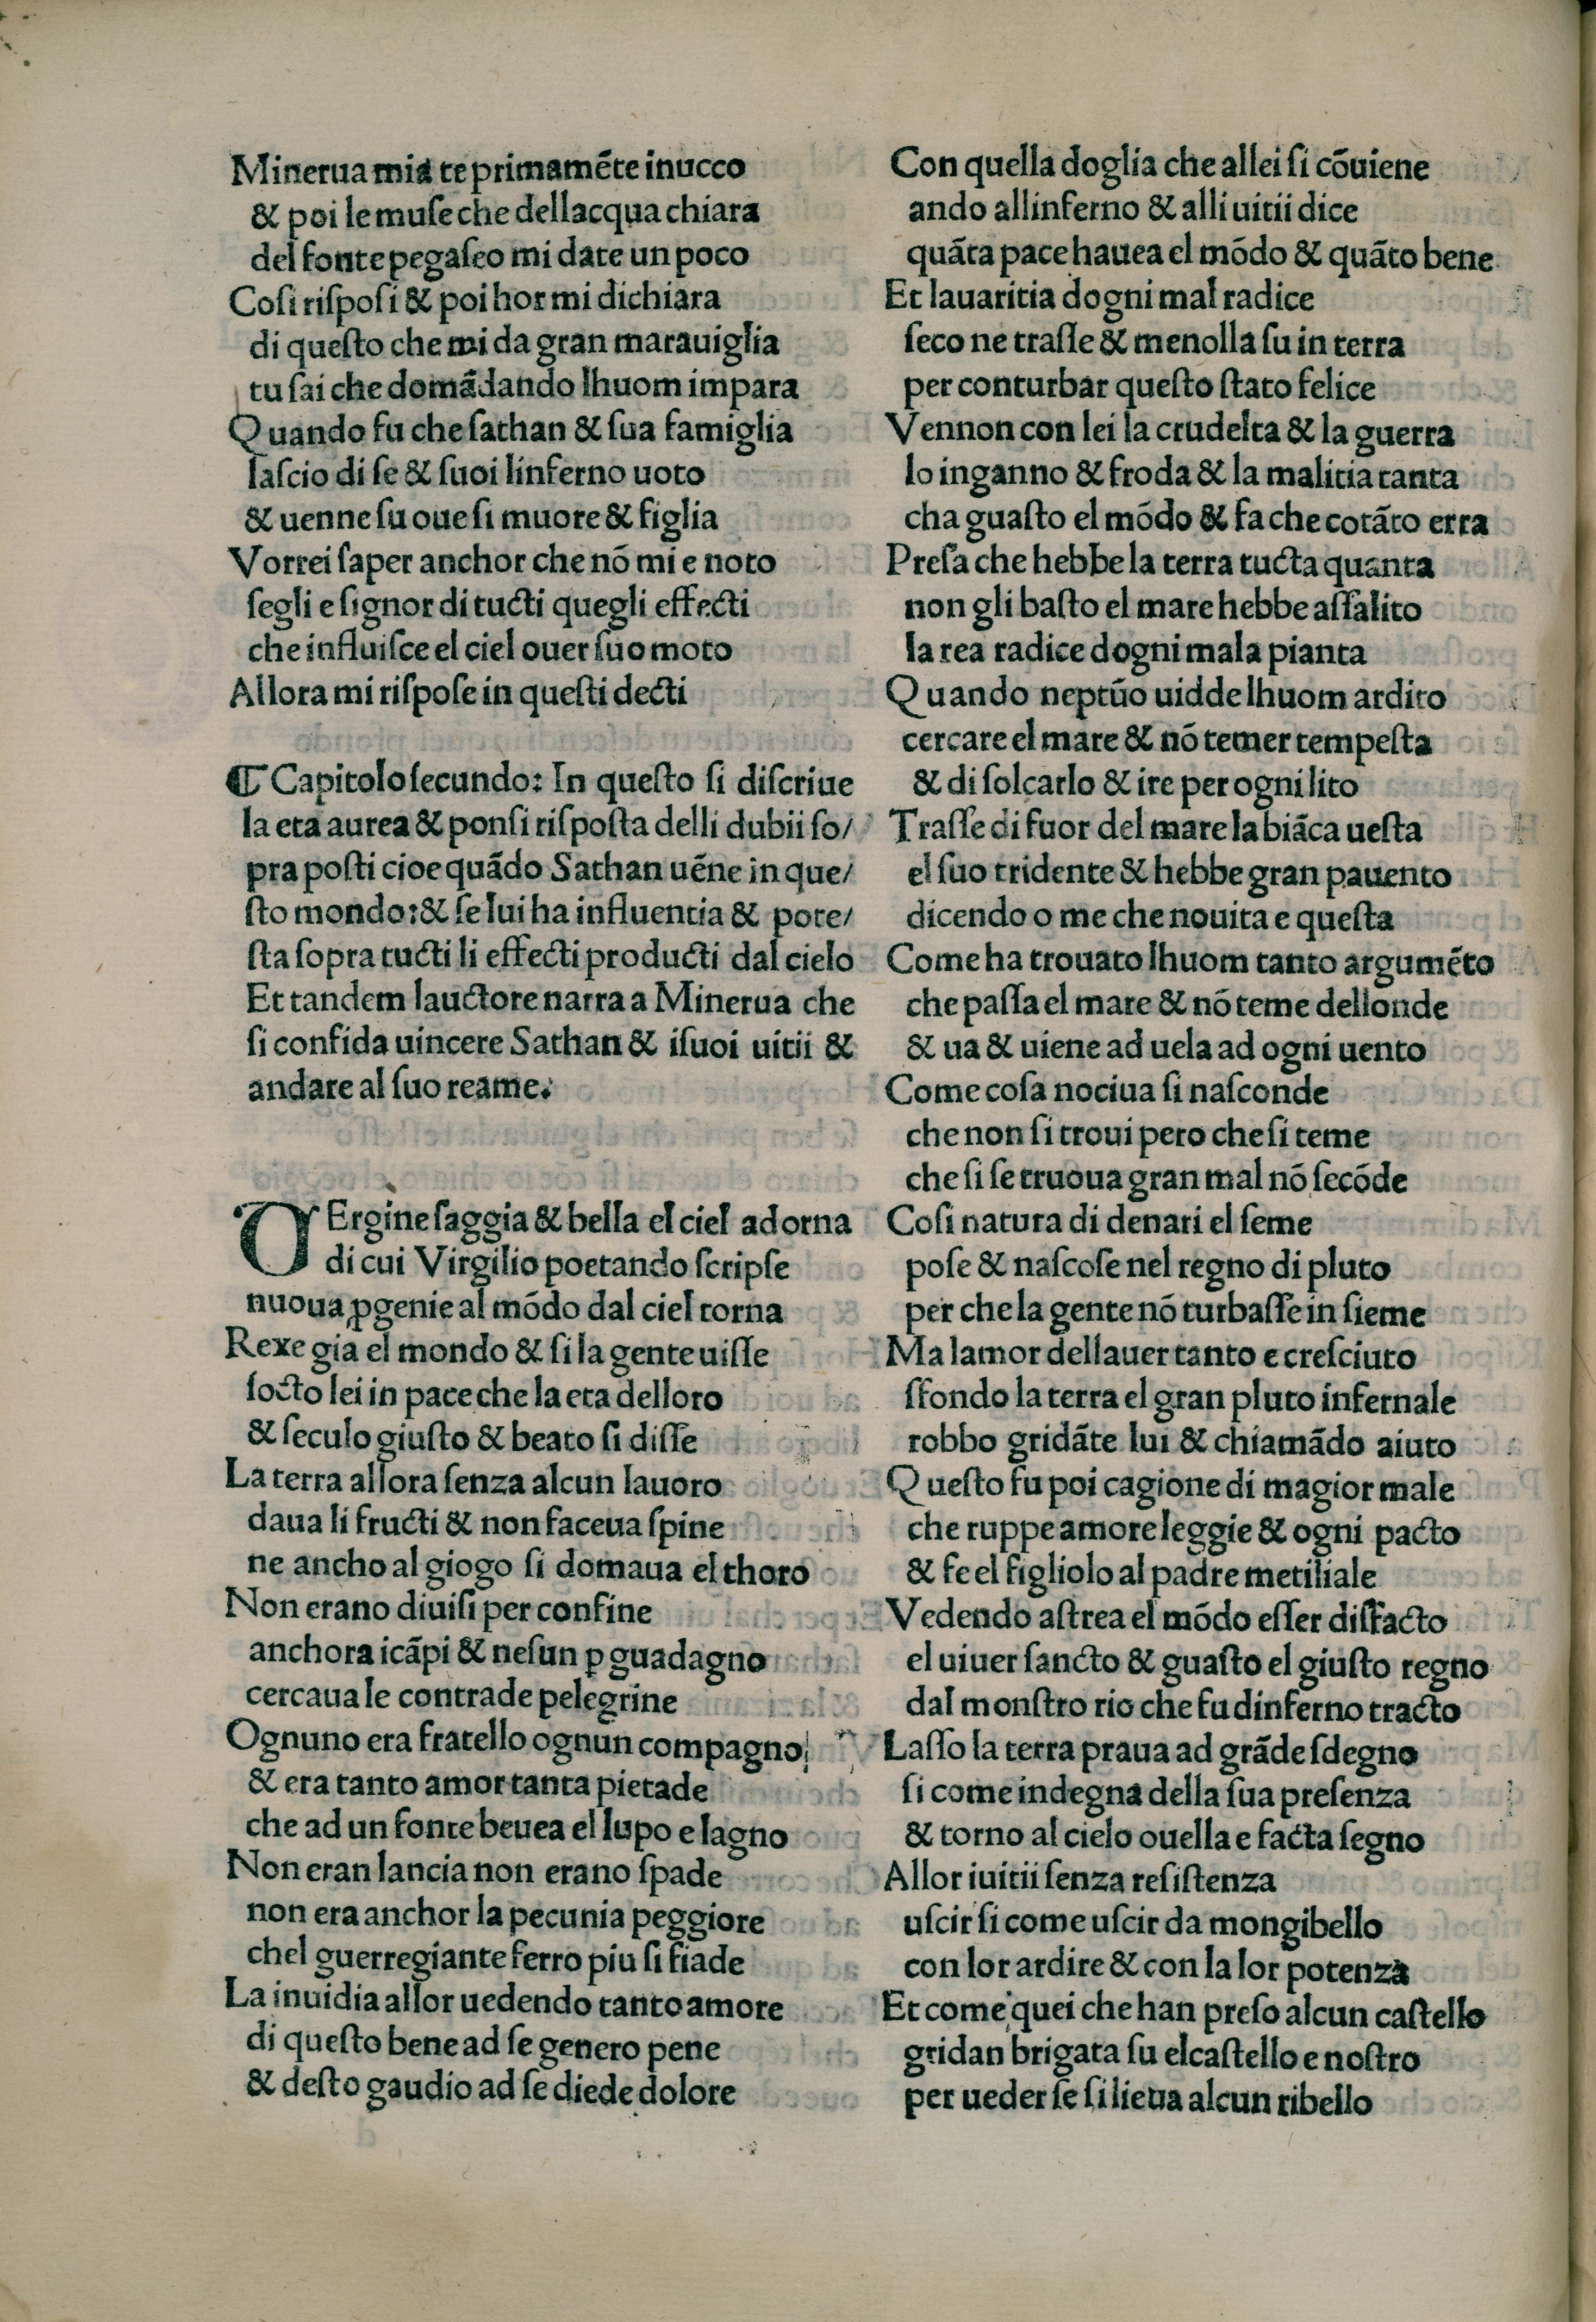 Minerua mia te primamēte inuoco
& poi le muſe che dellacqua chiara
del fonte pegaſeo mi date un poco
Coſi riſpoſi & poi hor mi dichiara
di queſto che mi da gran marauiglia
tu ſai che domādando lhuom impara
Quando fu che ſathan & ſua famiglia
laſcio di ſe & ſuoi linferno uoto
& uenne ſu oue ſi muore & figlia
Vorrei ſaper anchor che nō mi e noto
ſegli e ſignor di tucti quegli effecti
che influiſce el ciel ouer ſuo moto
Allora mi riſpoſe in queſti decti
¶ Capitolo ſecundo: In queſto ſi diſcriue
la eta aurea & ponſi riſpoſta delli dubii ſo/
pra poſti cioe quādo Sathan uēne in que/
ſto mondo: & ſe lui ha influentia & pote/
ſta ſopra tucti li effecti producti dal cielo
Et tandem lauctore narra a Minerua che
ſi confida uincere Sathan & iſuoi uitii &
andare al ſuo reame.
VErgine ſaggia & bella el ciel adorna
di cui Virgilio poetando ſcripſe
nuoua ꝓgenie al mōdo dal ciel torna
Rexe gia el mondo & ſi la gente uiſſe
ſocto lei in pace che la eta delloro
& ſeculo giuſto & beato ſi diſſe
La terra allora ſenza alcun lauoro
daua li fructi & non faceua ſpine
ne ancho al giogo ſi domaua el thoro
Non erano diuiſi per confine
anchora icāpi & neſun ꝑ guadagno
cercaua le contrade pelegrine
Ognuno era fratello ognun compagno
& era tanto amor tanta pietade
che ad un fonte beuea el lupo e lagno
Non eran lancia non erano ſpade
non era anchor la pecunia peggiore
chel guerregiante ferro piu ſi fiade
La inuidia allor uedendo tanto amore
di queſto bene ad ſe genero pene
& deſto gaudio ad ſe diede dolore
Con quella doglia che allei ſi cōuiene
ando allinferno & alli uitii dice
quāta pace hauea el mōdo & quāto bene
Et lauaritia dogni mal radice
ſeco ne traſſe & menolla ſu in terra
per conturbar queſto ſtato felice
Vennon con lei la crudelta & la guerra
lo inganno & froda & la malitia tanta
cha guaſto el mōdo & fa che cotāto erra
Preſa che hebbe la terra tucta quanta
non gli baſto el mare hebbe aſſalito
la rea radice dogni mala pianta
Quando neptūo uidde lhuom ardito
cercare el mare & nō temer tempeſta
& di ſolcarlo & ire per ogni lito
Traſſe di fuor del mare la biāca ueſta
el ſuo tridente & hebbe gran pauento
dicendo o me che nouita e queſta
Come ha trouato lhuom tanto argumēto
che paſſa el mare & nō teme dellonde
& ua & uiene ad uela ad ogni uento
Come coſa nociua ſi naſconde
che non ſi troui pero che ſi teme
che ſi ſe truoua gran mal nō ſecōde
Coſi natura di denari el ſeme
poſe & naſcoſe nel regno di pluto
per che la gente nō turbaſſe in ſieme
Ma lamor dellauer tanto e creſciuto
ſfondo la terra el gran pluto infernale
robbo gridāte lui & chiamādo aiuto
Queſto fu poi cagione di magior male
che ruppe amore leggie & ogni pacto
& fe el figliolo al padre metiliale
Vedendo aſtrea el mōdo eſſer diſfacto
el uiuer ſancto & guaſto el giuſto regno
dal monſtro rio che fu dinferno tracto
Laſſo la terra praua ad grāde ſdegno
ſi come indegna della ſua preſenza
& torno al cielo ouella e facta ſegno
Allor iuitii ſenza reſiſtenza
uſcir ſi come uſcir da mongibello
con lor ardire & con la lor potenza
Et come quei che han preſo alcun caſtello
gridan brigata ſu elcaſtello e noſtro
per ueder ſe ſi lieua alcun ribello